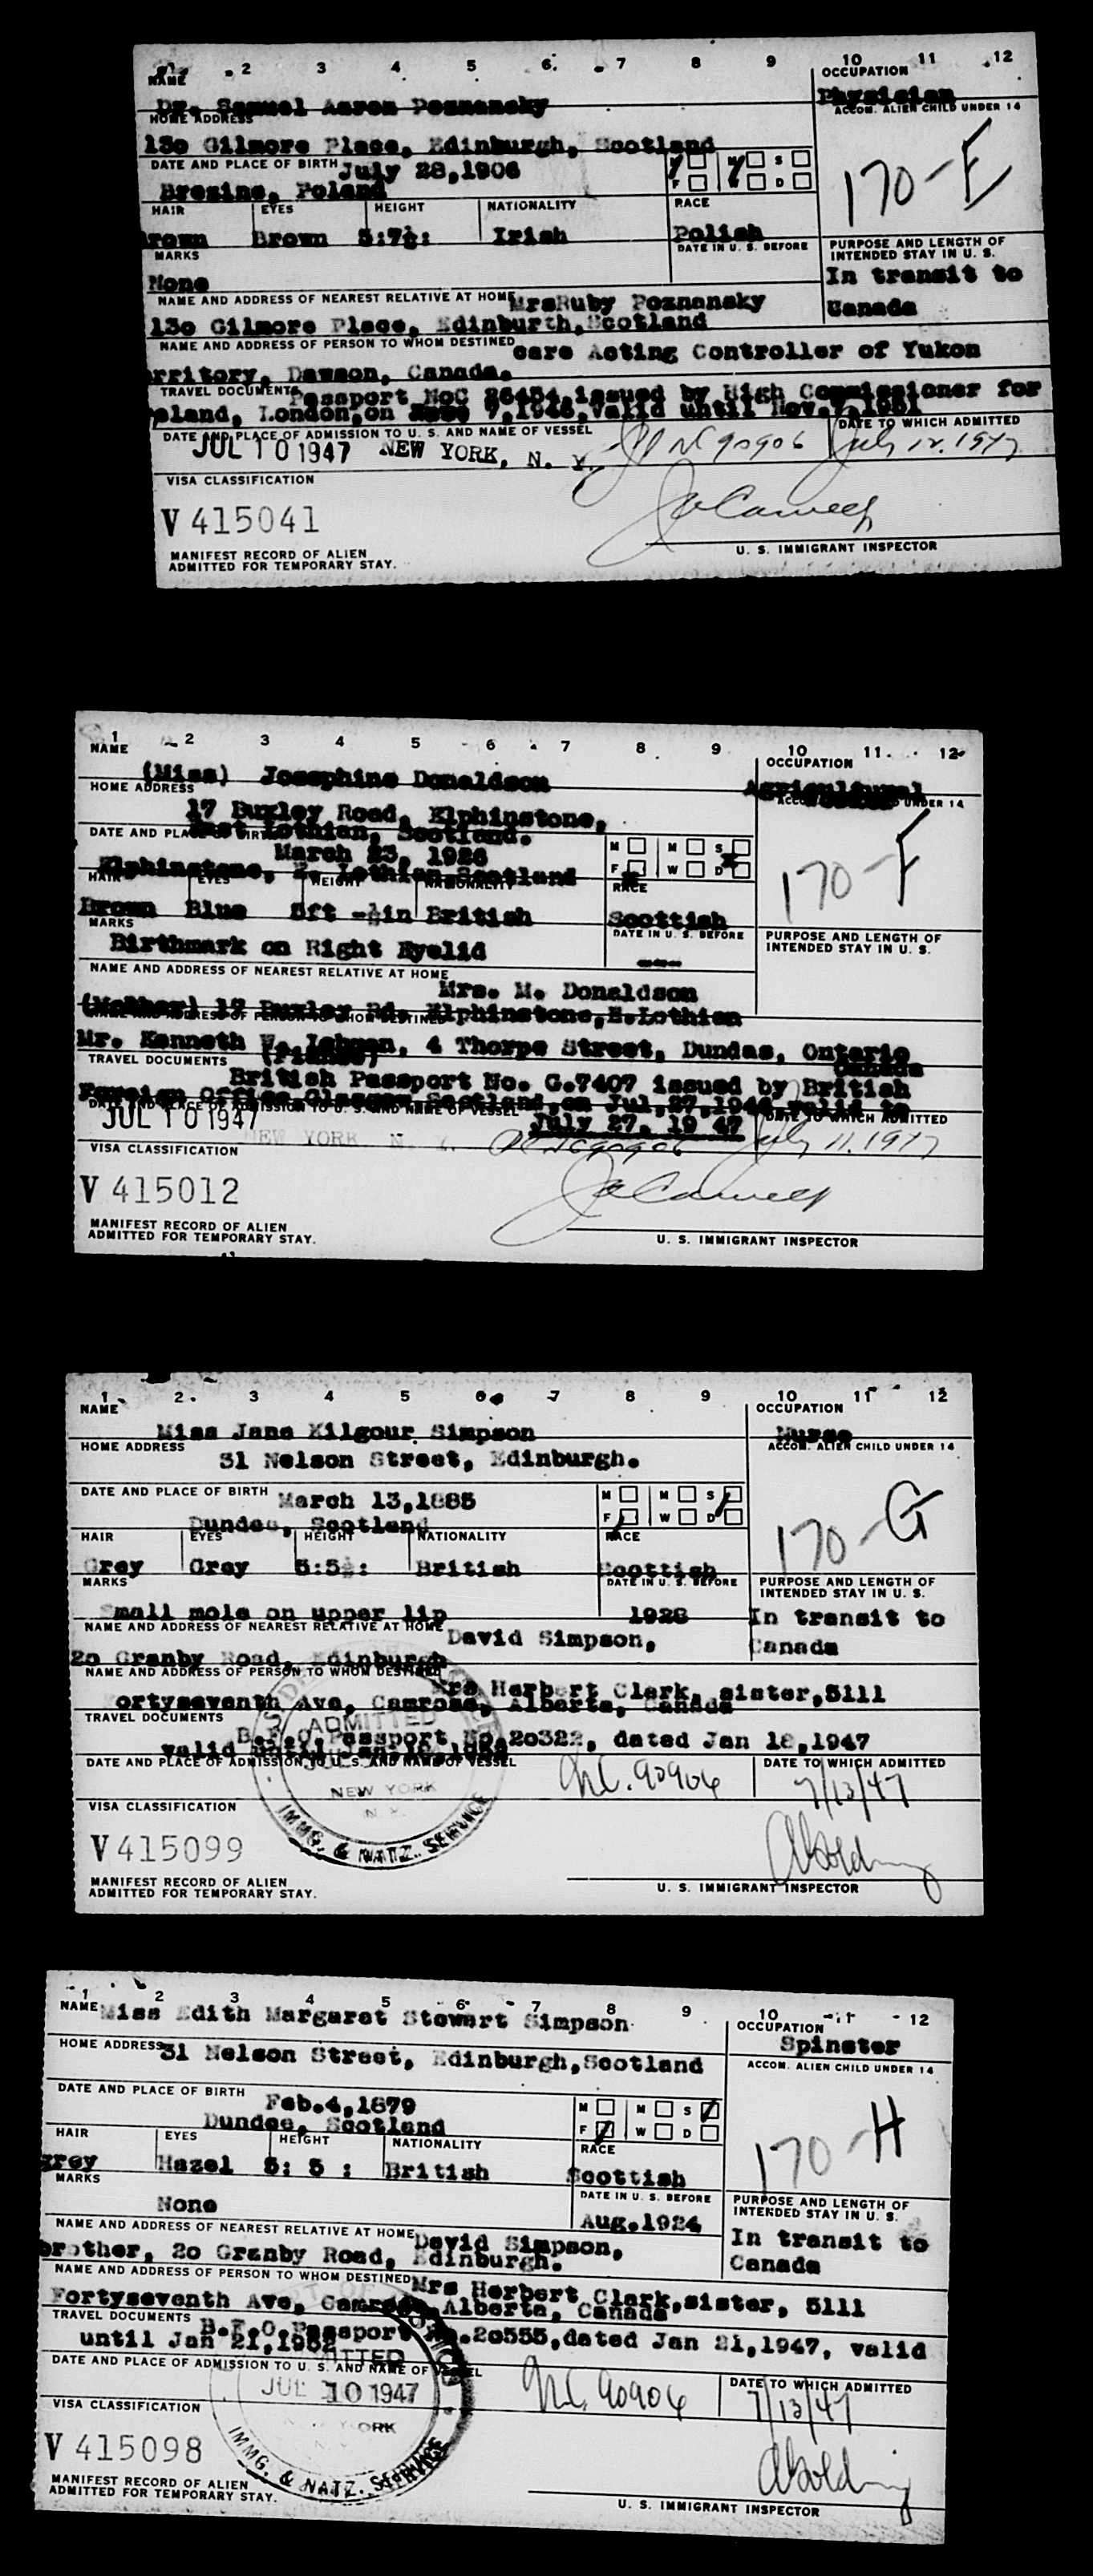 2 3 4 5 6 7 8 9 10 11 12
NAME OCCUPATION
Dr. Samuel Aaron Poznansky Physician
HOME ADDRESS ACCOM. ALIEN CHILD UNDER 14
13o Gilmore Place, Edinburgh, Scotland
DATE AND PLACE OF BIRTH July 28,1906 M M S
Brezine, Poland F W D
170-E
HAIR EYES HEIGHT NATIONALITY RACE
rown Brown 5:7½: Irish Polish
MARKS DATE IN U. S. BEFORE PURPOSE AND LENGTH OF
INTENDED STAY IN U. S.
None In transit to
NAME AND ADDRESS OF NEAREST RELATIVE AT HOME MrsRuby Poznansky Canada
13o Gilmore Place, Edinburth,Scotland
NAME AND ADDRESS OF PERSON TO WHOM DESTINED care Acting Controller of Yukon
rritory, Dawson, Canada.
TRAVEL DOCUMENTS Passport NoC 26454,issued by High Commissioner for
eland, London,on 7,1946,valid until Nov.7,1951
DATE AND PLACE OF ADMISSION TO U. S. AND NAME OF VESSEL DATE TO WHICH ADMITTED
JUL 10 1947 NEW YORK, N. Y. 90906 July 12.1947
VISA CLASSIFICATION
V 415041
MANIFEST RECORD OF ALIEN
ADMITTED FOR TEMPORARY STAY.
U. S. IMMIGRANT INSPECTOR
1 2 3 4 5 6 7 8 9 10 11 12
NAME OCCUPATION
(Miss) Josephine Donaldson Agricultural
HOME ADDRESS ACCOM. UNDER 14
17 Buxley Road, Elphinstone,
East Lothian, Scotland.
DATE AND PLACE OF BIRTH
March 23, 1926 M M S
Elphinstone, E. Lothian Scotland F W D
170-F
HAIR EYES HEIGHT NATIONALITY RACE
Brown Blue 5ft -½in British Scottish
MARKS DATE IN U. S. BEFORE PURPOSE AND LENGTH OF
INTENDED STAY IN U. S.
Birthmark on Right Eyelid ---
NAME AND ADDRESS OF NEAREST RELATIVE AT HOME
Mrs. M. Donaldson
(Mother) 17 Buxley Rd. Elphinstone,E.Lothian
NAME AND ADDRESS OF PERSON TO WHOM DESTINED
Mr. Kenneth Lehman, 4 Thorpe Street, Dundas, Ontario
TRAVEL DOCUMENTS (Fiance) Canada
British Passport No. G.7407 issued by British
Foreign Office Glasgow Scotland,on Jul,27,1946,valid to
DATE AND PLACE OF ADMISSION TO U. S. AND NAME OF VESSEL DATE TO WHICH ADMITTED
JUL 10 1947 NEW YORK, N. Y. July 27, 19 47 July 11.1947
VISA CLASSIFICATION
V 415012
MANIFEST RECORD OF ALIEN
ADMITTED FOR TEMPORARY STAY.
U. S. IMMIGRANT INSPECTOR
1 2 3 4 5 6 7 8 9 10 11 12
NAME OCCUPATION
Miss Jane Kilgour Simpson Nurse
HOME ADDRESS ACCOM. ALIEN CHILD UNDER 14
31 Nelson Street, Edinburgh.
DATE AND PLACE OF BIRTH March 13,1885 M M S
Dundee, Scotland F W D
170-G
HAIR EYES HEIGHT NATIONALITY RACE
Grey Gray 5:5½: British Scottish
MARKS DATE IN U. S. BEFORE PURPOSE AND LENGTH OF
INTENDED STAY IN U. S.
Small mole on upper lip 1928 In transit to
NAME AND ADDRESS OF NEAREST RELATIVE AT HOME David Simpson, Canada
2o Granby Road, Edinburgh
NAME AND ADDRESS OF PERSON TO WHOM DESTINED Mrs Herbert Clark, sister,5111
ortyseventh Ave, Camrose, Alberta, Canada
TRAVEL DOCUMENTS B.F.O.Passport No.20322, dated Jan 18,1947
valid until Jan.
DATE AND PLACE OF ADMISSION TO U. S. AND NAME OF VESSEL DATE TO WHICH ADMITTED
ADMITTED
NEW YORK
N. Y.
IMMG. & NATZ. SERVICE
90906 7/13/47
VISA CLASSIFICATION
V 415099
MANIFEST RECORD OF ALIEN
ADMITTED FOR TEMPORARY STAY.
U. S. IMMIGRANT INSPECTOR
1 2 3 4 5 6 7 8 9 10 11 12
NAME Miss Edith Margaret Stewart Simpson OCCUPATION
Spinster
HOME ADDRESS 31 Nelson Street, Edinburgh,Scotland ACCOM. ALIEN CHILD UNDER 14
DATE AND PLACE OF BIRTH
Feb.4,1879 M M S
Dundee, Scotland F W D
170-H
HAIR EYES HEIGHT NATIONALITY RACE
grey Hazel 5: 5 : British Scottish
MARKS DATE IN U. S. BEFORE PURPOSE AND LENGTH OF
INTENDED STAY IN U. S.
None Aug.1924 In transit to
NAME AND ADDRESS OF NEAREST RELATIVE AT HOME David Simpson, Canada
brother, 2o Granby Road, Edinburgh.
NAME AND ADDRESS OF PERSON TO WHOM DESTINED Mrs Herbert Clark,sister, 5111
Fortyseventh Ave, Camrose,Alberta, Canada
TRAVEL DOCUMENTS B.F.O.Passport No.20555,dated Jan 21,1947, valid
until Jan 21,1952
DATE AND PLACE OF ADMISSION TO U. S. AND NAME OF VESSEL DATE TO WHICH ADMITTED
ADMITTED
JUL 10 1947
NEW YORK
IMMG. & NATZ. SERVICE
90906 7/13/47
VISA CLASSIFICATION
V 415098
MANIFEST RECORD OF ALIEN
ADMITTED FOR TEMPORARY STAY.
U. S. IMMIGRANT INSPECTOR